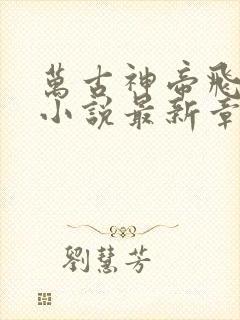 萬古神帝飛
小說最新章
劉慧芳